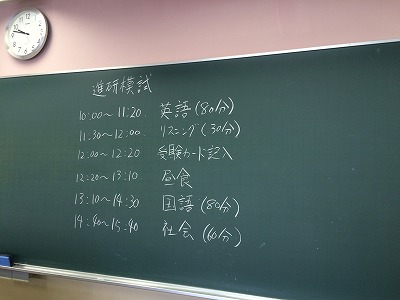 進研模試
10:00～11:20 英語(80分)
11:30～12:00 リスニング(30分)
12:00～12:20 受験カード記入
12:20～13:10 昼食
13:10～14:30 国語(80分)
14:40～15:40 社会(60分)